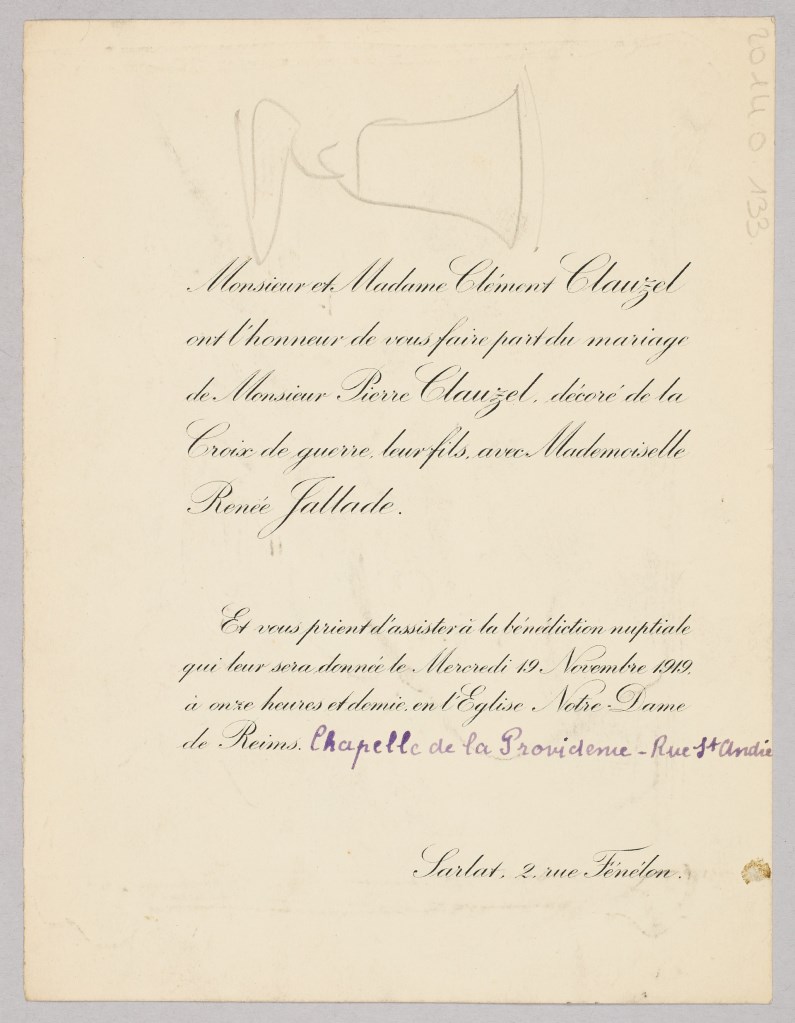 2014 0 133
Monsieur et Madame Clément Clauzel
ont l'honneur de vous faire part du mariage
de Monsieur Pierre Clauzel, décoré de la
Croix de guerre, leur fils, avec Mademoiselle
Renée Jallade.
Et vous prient d'assister à la bénédiction nuptiale
qui leur sera donnée le Mercredi 19 Novembre 1919,
à onze heures et demie, en l'Eglise Notre-Dame
de Reims. Chapelle de la Providence - Rue St André
Sarlat, 2, rue Fénélon.